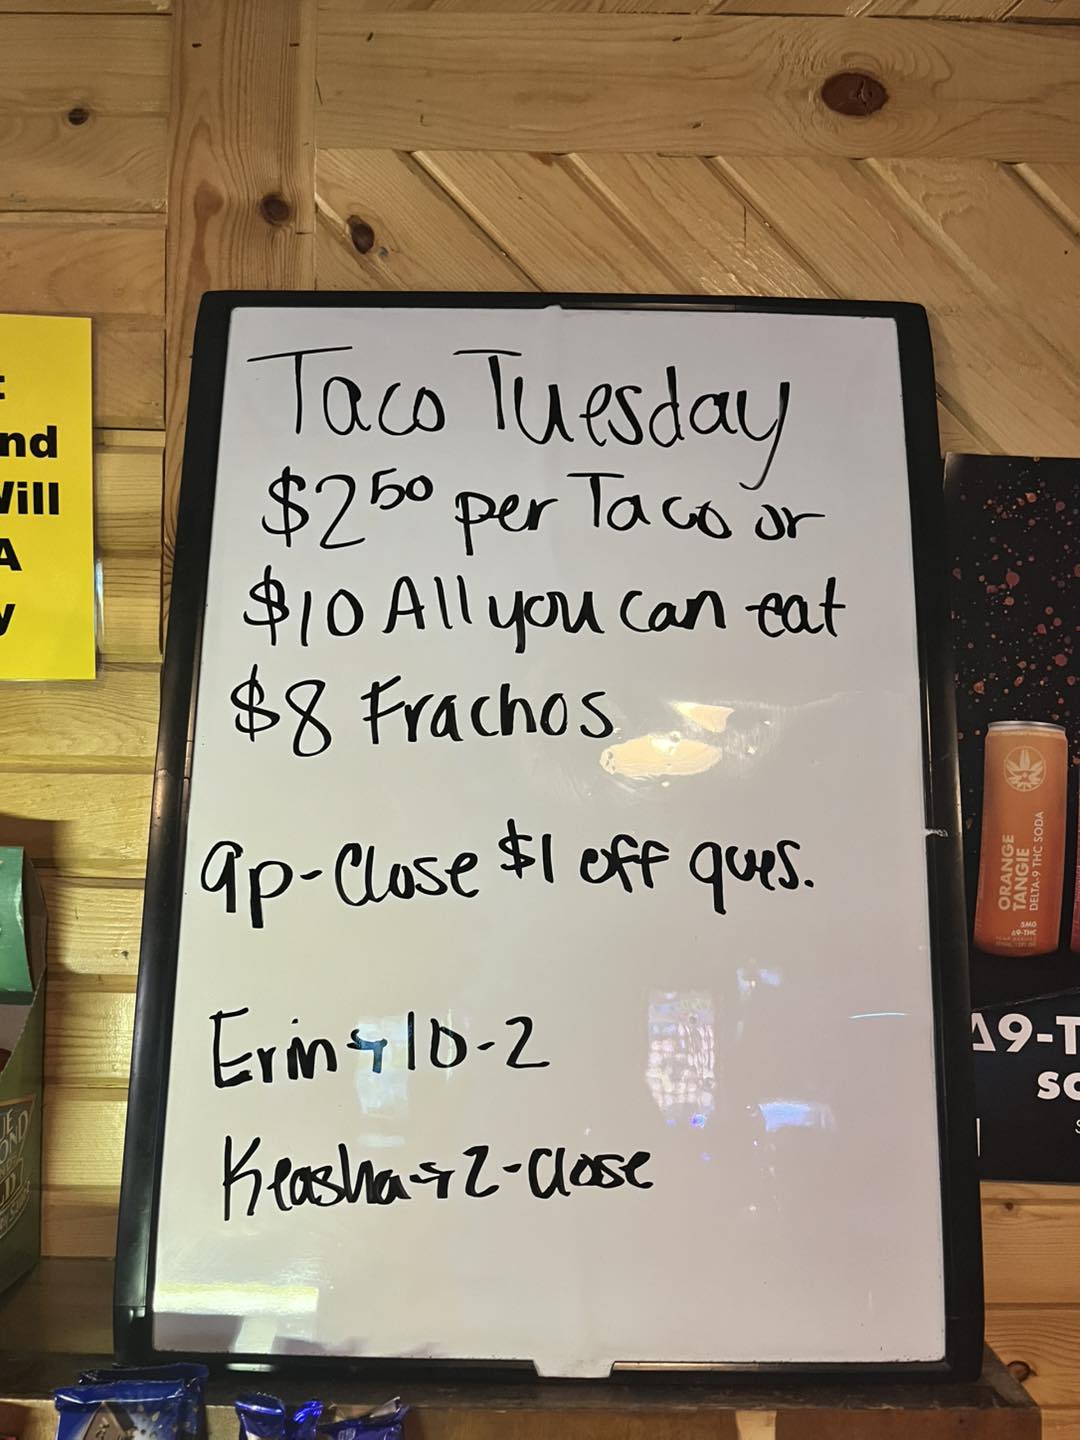 Taco Tuesday
$2 50 per Taco or
$10 All you can eat
$8 Frachos
9p-Close $1 off ques.
Erin → 10-2
Keasha → 2-Close
nd
Will
A
y
ORANGE
TANGIE
DELTA-9 THC SODA
5MG
Δ9-THC
Δ9-T
SO